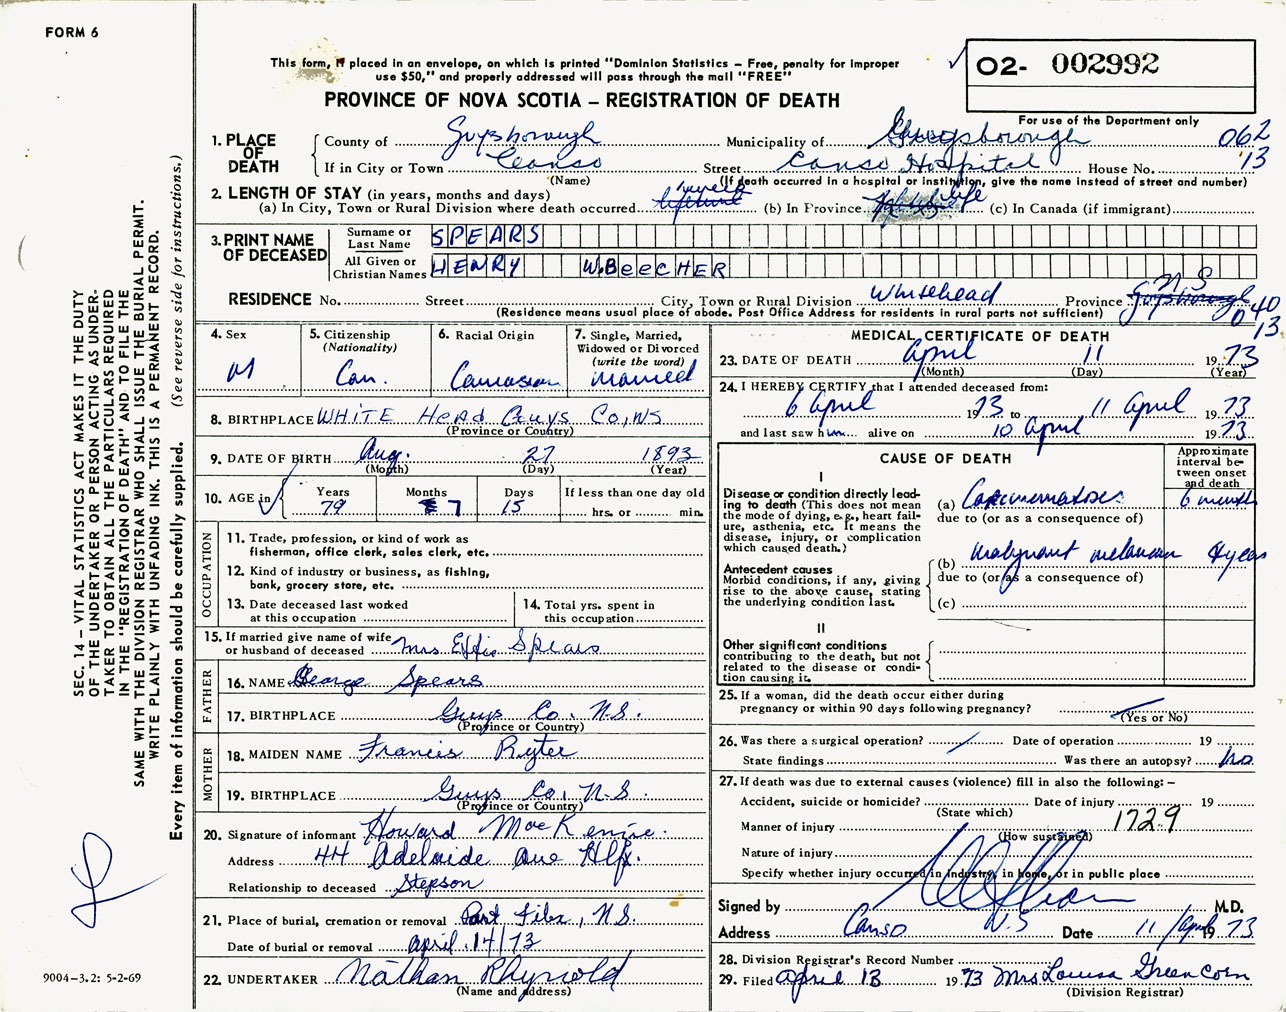 FORM 6
This form, if placed in an envelope, on which is printed "Dominion Statistics – Free, penalty for improper
use $50," and properly addressed will pass through the mail "FREE"
PROVINCE OF NOVA SCOTIA – REGISTRATION OF DEATH
O2- 002992
For use of the Department only
062
13
1. PLACE OF DEATH
County of Guysborough Municipality of Guysborough
If in City or Town Canso Street Canso Hospital House No.
(Name) (If death occurred in a hospital or institution, give the name instead of street and number)
2. LENGTH OF STAY (in years, months and days)
(a) In City, Town or Rural Division where death occurred 1 week (b) In Province Life (c) In Canada (if immigrant)
3. PRINT NAME OF DECEASED
Surname or Last Name SPEARS
All Given or Christian Names HENRY W. BEECHER
RESIDENCE No. Street City, Town or Rural Division Whitehead Province N S
(Residence means usual place of abode. Post Office Address for residents in rural parts not sufficient)
040
13
4. Sex M
5. Citizenship (Nationality) Can.
6. Racial Origin Caucasian
7. Single, Married, Widowed or Divorced (write the word) Married
8. BIRTHPLACE WHITE HEAD GUYS CO, NS
(Province or Country)
9. DATE OF BIRTH Aug. 27 1893
(Month) (Day) (Year)
10. AGE in Years 79 Months 7 Days 15 If less than one day old
hrs. or min.
OCCUPATION
11. Trade, profession, or kind of work as
fisherman, office clerk, sales clerk, etc.
12. Kind of industry or business, as fishing,
bank, grocery store, etc.
13. Date deceased last worked
at this occupation
14. Total yrs. spent in
this occupation
15. If married give name of wife
or husband of deceased Mrs Effie Spears
FATHER
16. NAME George Spears
17. BIRTHPLACE Guys Co. N.S.
(Province or Country)
MOTHER
18. MAIDEN NAME Francis Ryter
19. BIRTHPLACE Guys Co, N.S.
(Province or Country)
20. Signature of informant Howard MacKenzie
Address 44 Adelaide Ave Hlfx.
Relationship to deceased Stepson
21. Place of burial, cremation or removal Port Felix, N.S.
Date of burial or removal April 14/73
22. UNDERTAKER Nathan Rhynold
(Name and address)
MEDICAL CERTIFICATE OF DEATH
23. DATE OF DEATH April 11 1973
(Month) (Day) (Year)
24. I HEREBY CERTIFY that I attended deceased from:
6 April 1973 to 11 April 1973
and last saw him alive on 10 April 1973
CAUSE OF DEATH
Approximate interval between onset and death
I
Disease or condition directly lead-
ing to death (This does not mean
the mode of dying, e.g., heart fail-
ure, asthenia, etc. It means the
disease, injury, or complication
which caused death.)
(a) Carcinomatosis 6 months
due to (or as a consequence of)
Antecedent causes
Morbid conditions, if any, giving
rise to the above cause, stating
the underlying condition last.
(b) Malignant melanoma 4 years
due to (or as a consequence of)
(c)
II
Other significant conditions
contributing to the death, but not
related to the disease or condi-
tion causing it.
25. If a woman, did the death occur either during
pregnancy or within 90 days following pregnancy?
(Yes or No)
26. Was there a surgical operation? Date of operation 19
State findings Was there an autopsy? No
27. If death was due to external causes (violence) fill in also the following: –
Accident, suicide or homicide? Date of injury 19
(State which)
Manner of injury 1729
(How sustained)
Nature of injury
Specify whether injury occurred in industry, in home, or in public place
Signed by M.D.
Address Canso N.S Date 11/April 1973
28. Division Registrar's Record Number
29. Filed April 13 1973 Mrs Louisa Greencorn
(Division Registrar)
SEC. 14 – VITAL STATISTICS ACT MAKES IT THE DUTY
OF THE UNDERTAKER OR PERSON ACTING AS UNDER-
TAKER TO OBTAIN ALL THE PARTICULARS REQUIRED
IN THE "REGISTRATION OF DEATH" AND TO FILE THE
SAME WITH THE DIVISION REGISTRAR WHO SHALL ISSUE THE BURIAL PERMIT.
WRITE PLAINLY WITH UNFADING INK. THIS IS A PERMANENT RECORD.
Every item of information should be carefully supplied. (See reverse side for instructions.)
9004–3.2: 5-2-69